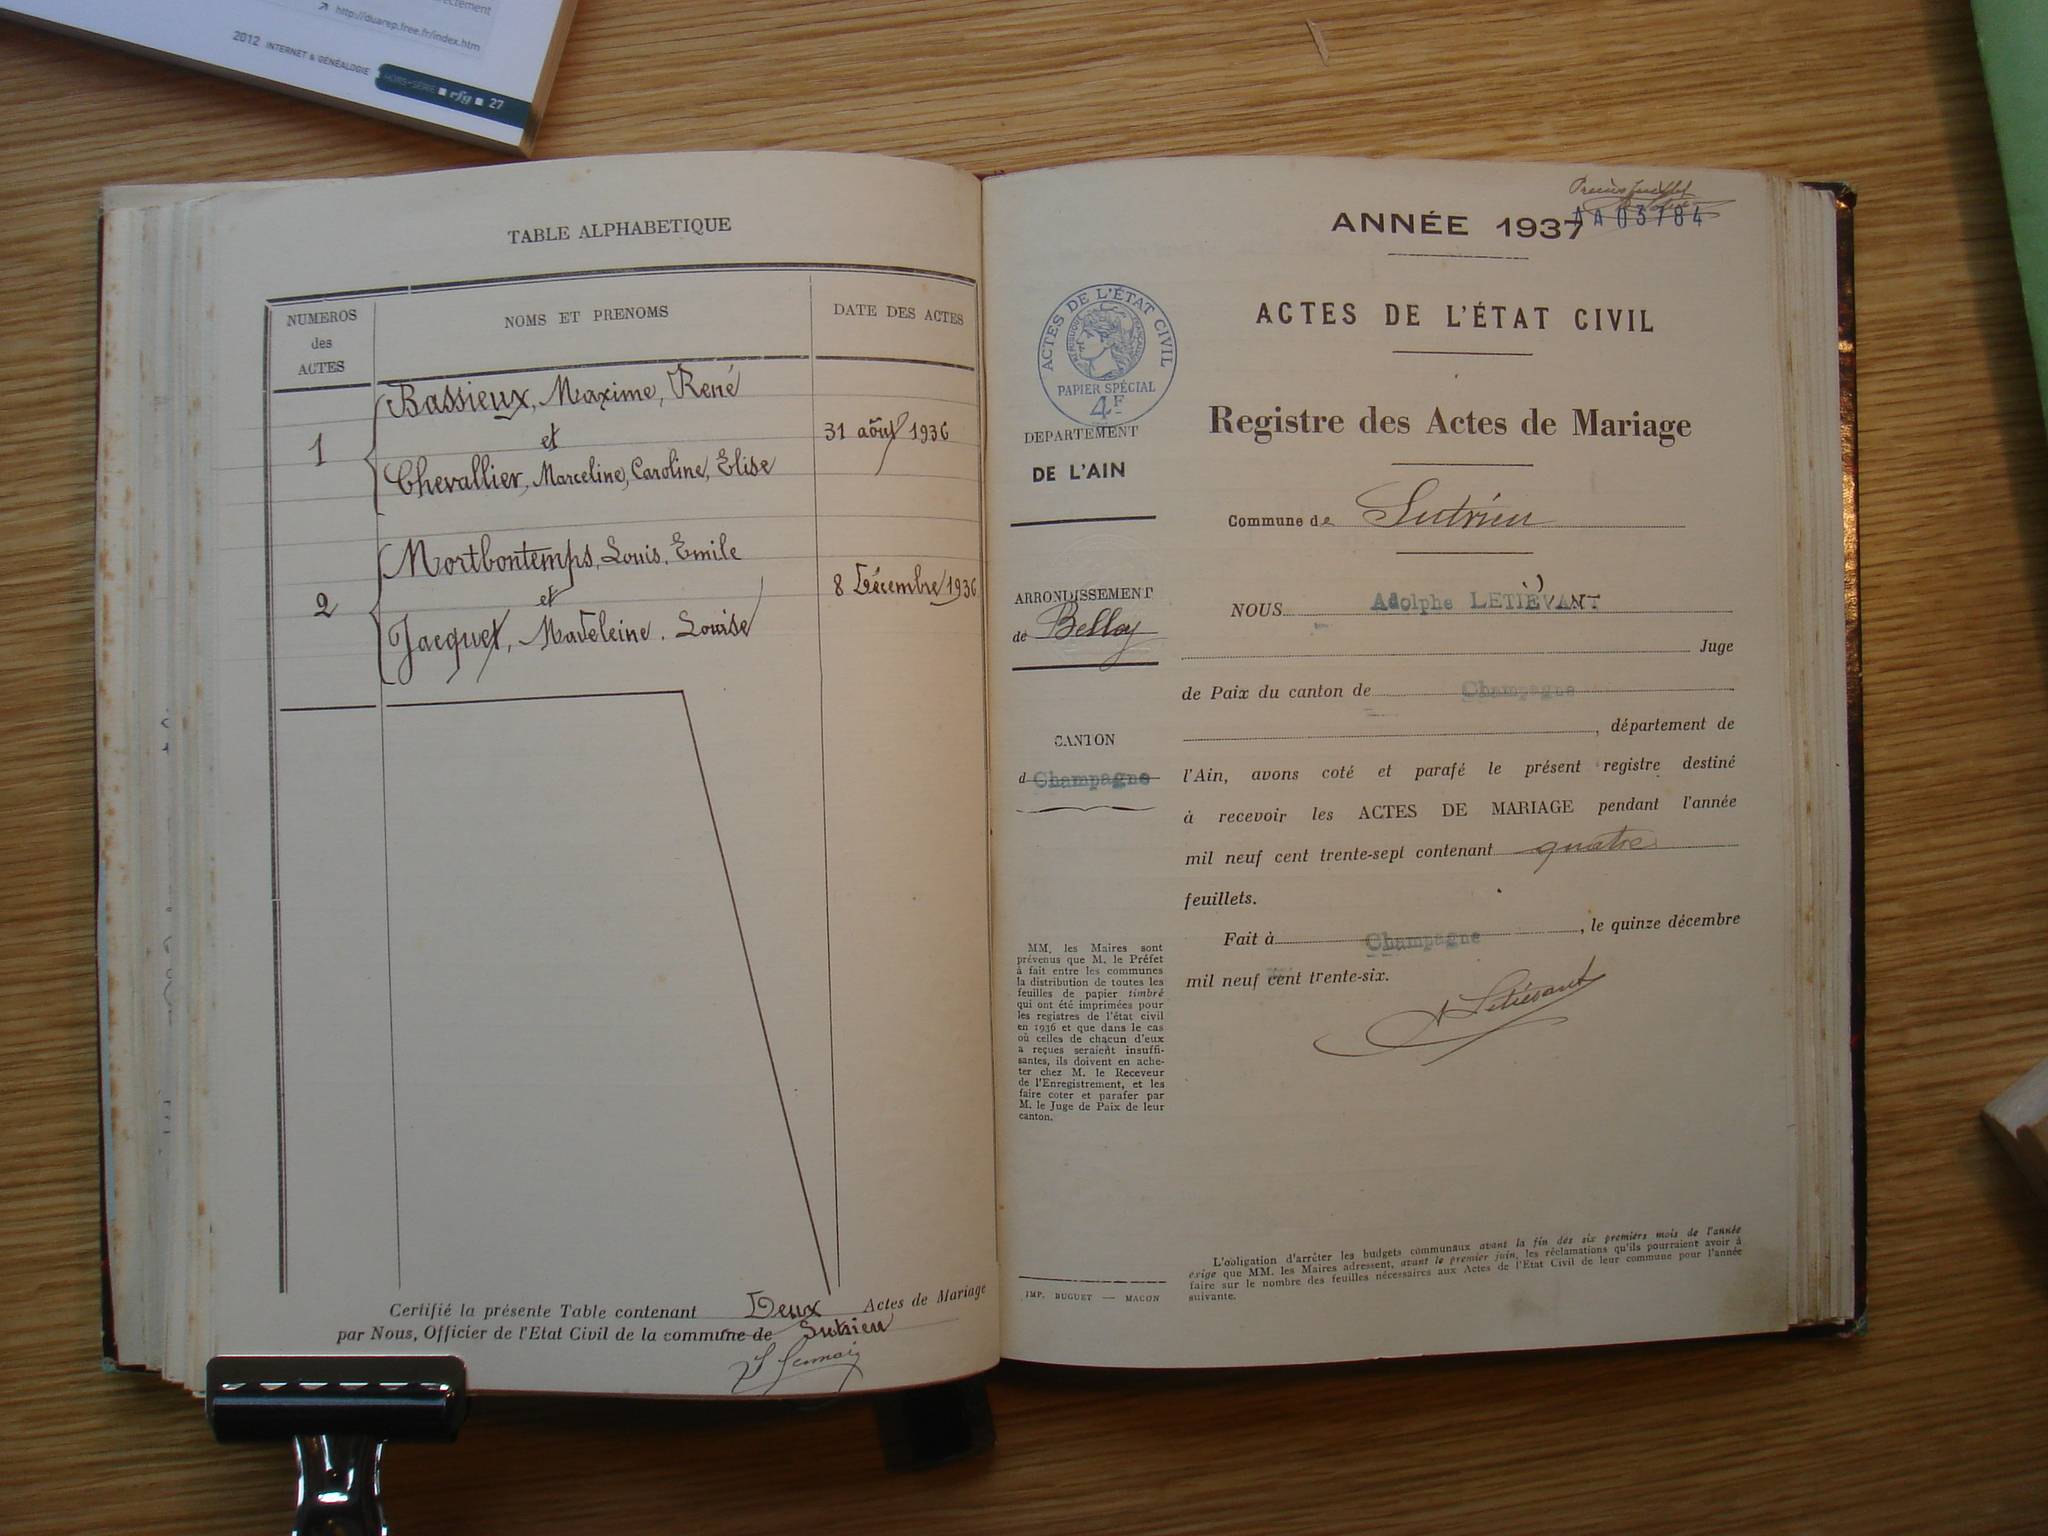 ectement
http://duarep.free.fr/index.htm
2012 INTERNET & GÉNÉALOGIE
HORS-SÉRIE rfg 27
TABLE ALPHABETIQUE
NUMEROS des ACTES
NOMS ET PRENOMS
DATE DES ACTES
Bassieux, Maxime, René
1
et
31 août 1936
Chevallier, Marceline, Caroline, Elise
Mortbontemps, Louis, Emile
2
et
8 Décembre 1936
Jacquet, Madeleine, Louise
Certifié la présente Table contenant Deux Actes de Mariage
par Nous, Officier de l'Etat Civil de la commune de Sutrieu
AA 03784
ANNÉE 1937
ACTES DE L'ÉTAT CIVIL
RÉPUBLIQUE FRANÇAISE
PAPIER SPÉCIAL
4F
ACTES DE L'ÉTAT CIVIL
Registre des Actes de Mariage
DEPARTEMENT
DE L'AIN
Commune de Sutrieu
ARRONDISSEMENT
de Belley
CANTON
d Champagne
NOUS Adolphe LETIÉVANT
Juge
de Paix du canton de Champagne
, département de
l'Ain, avons coté et parafé le présent registre destiné
à recevoir les ACTES DE MARIAGE pendant l'année
mil neuf cent trente-sept contenant quatre
feuillets.
Fait à Champagne, le quinze décembre
mil neuf cent trente-six.
A Letiévant
MM. les Maires sont
prévenus que M. le Préfet
à fait entre les communes
la distribution de toutes les
feuilles de papier timbré
qui ont été imprimées pour
les registres de l'état civil
en 1936 et que dans le cas
où celles de chacun d'eux
a reçues seraient insuffi-
santes, ils doivent en ache-
ter chez M. le Receveur
de l'Enregistrement, et les
faire coter et parafer par
M. le Juge de Paix de leur
canton.
IMP. BUGUET — MACON
L'obligation d'arrêter les budgets communaux avant la fin des six premiers mois de l'année
exige que MM. les Maires adressent, avant le premier juin, les réclamations qu'ils pourraient avoir à
faire sur le nombre des feuilles nécessaires aux Actes de l'Etat Civil de leur commune pour l'année
suivante.